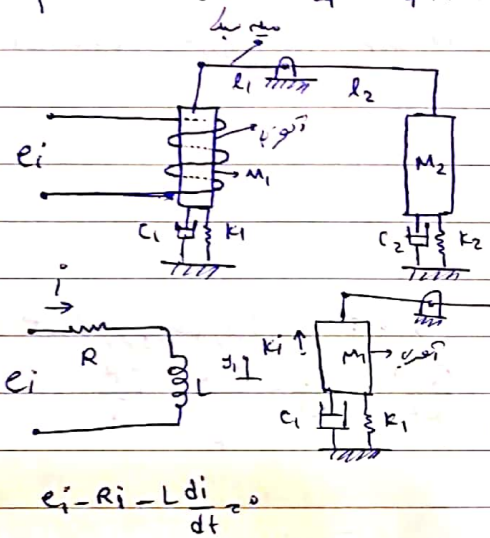 میله سبک
l₁ l₂
آهنربا
eᵢ
M₁
M₂
C₁ K₁
C₂ K₂
i
R
eᵢ
L
y₁
Ki ↑
M₁
آهنربا
C₁ K₁
eᵢ - Ri - L di/dt = 0